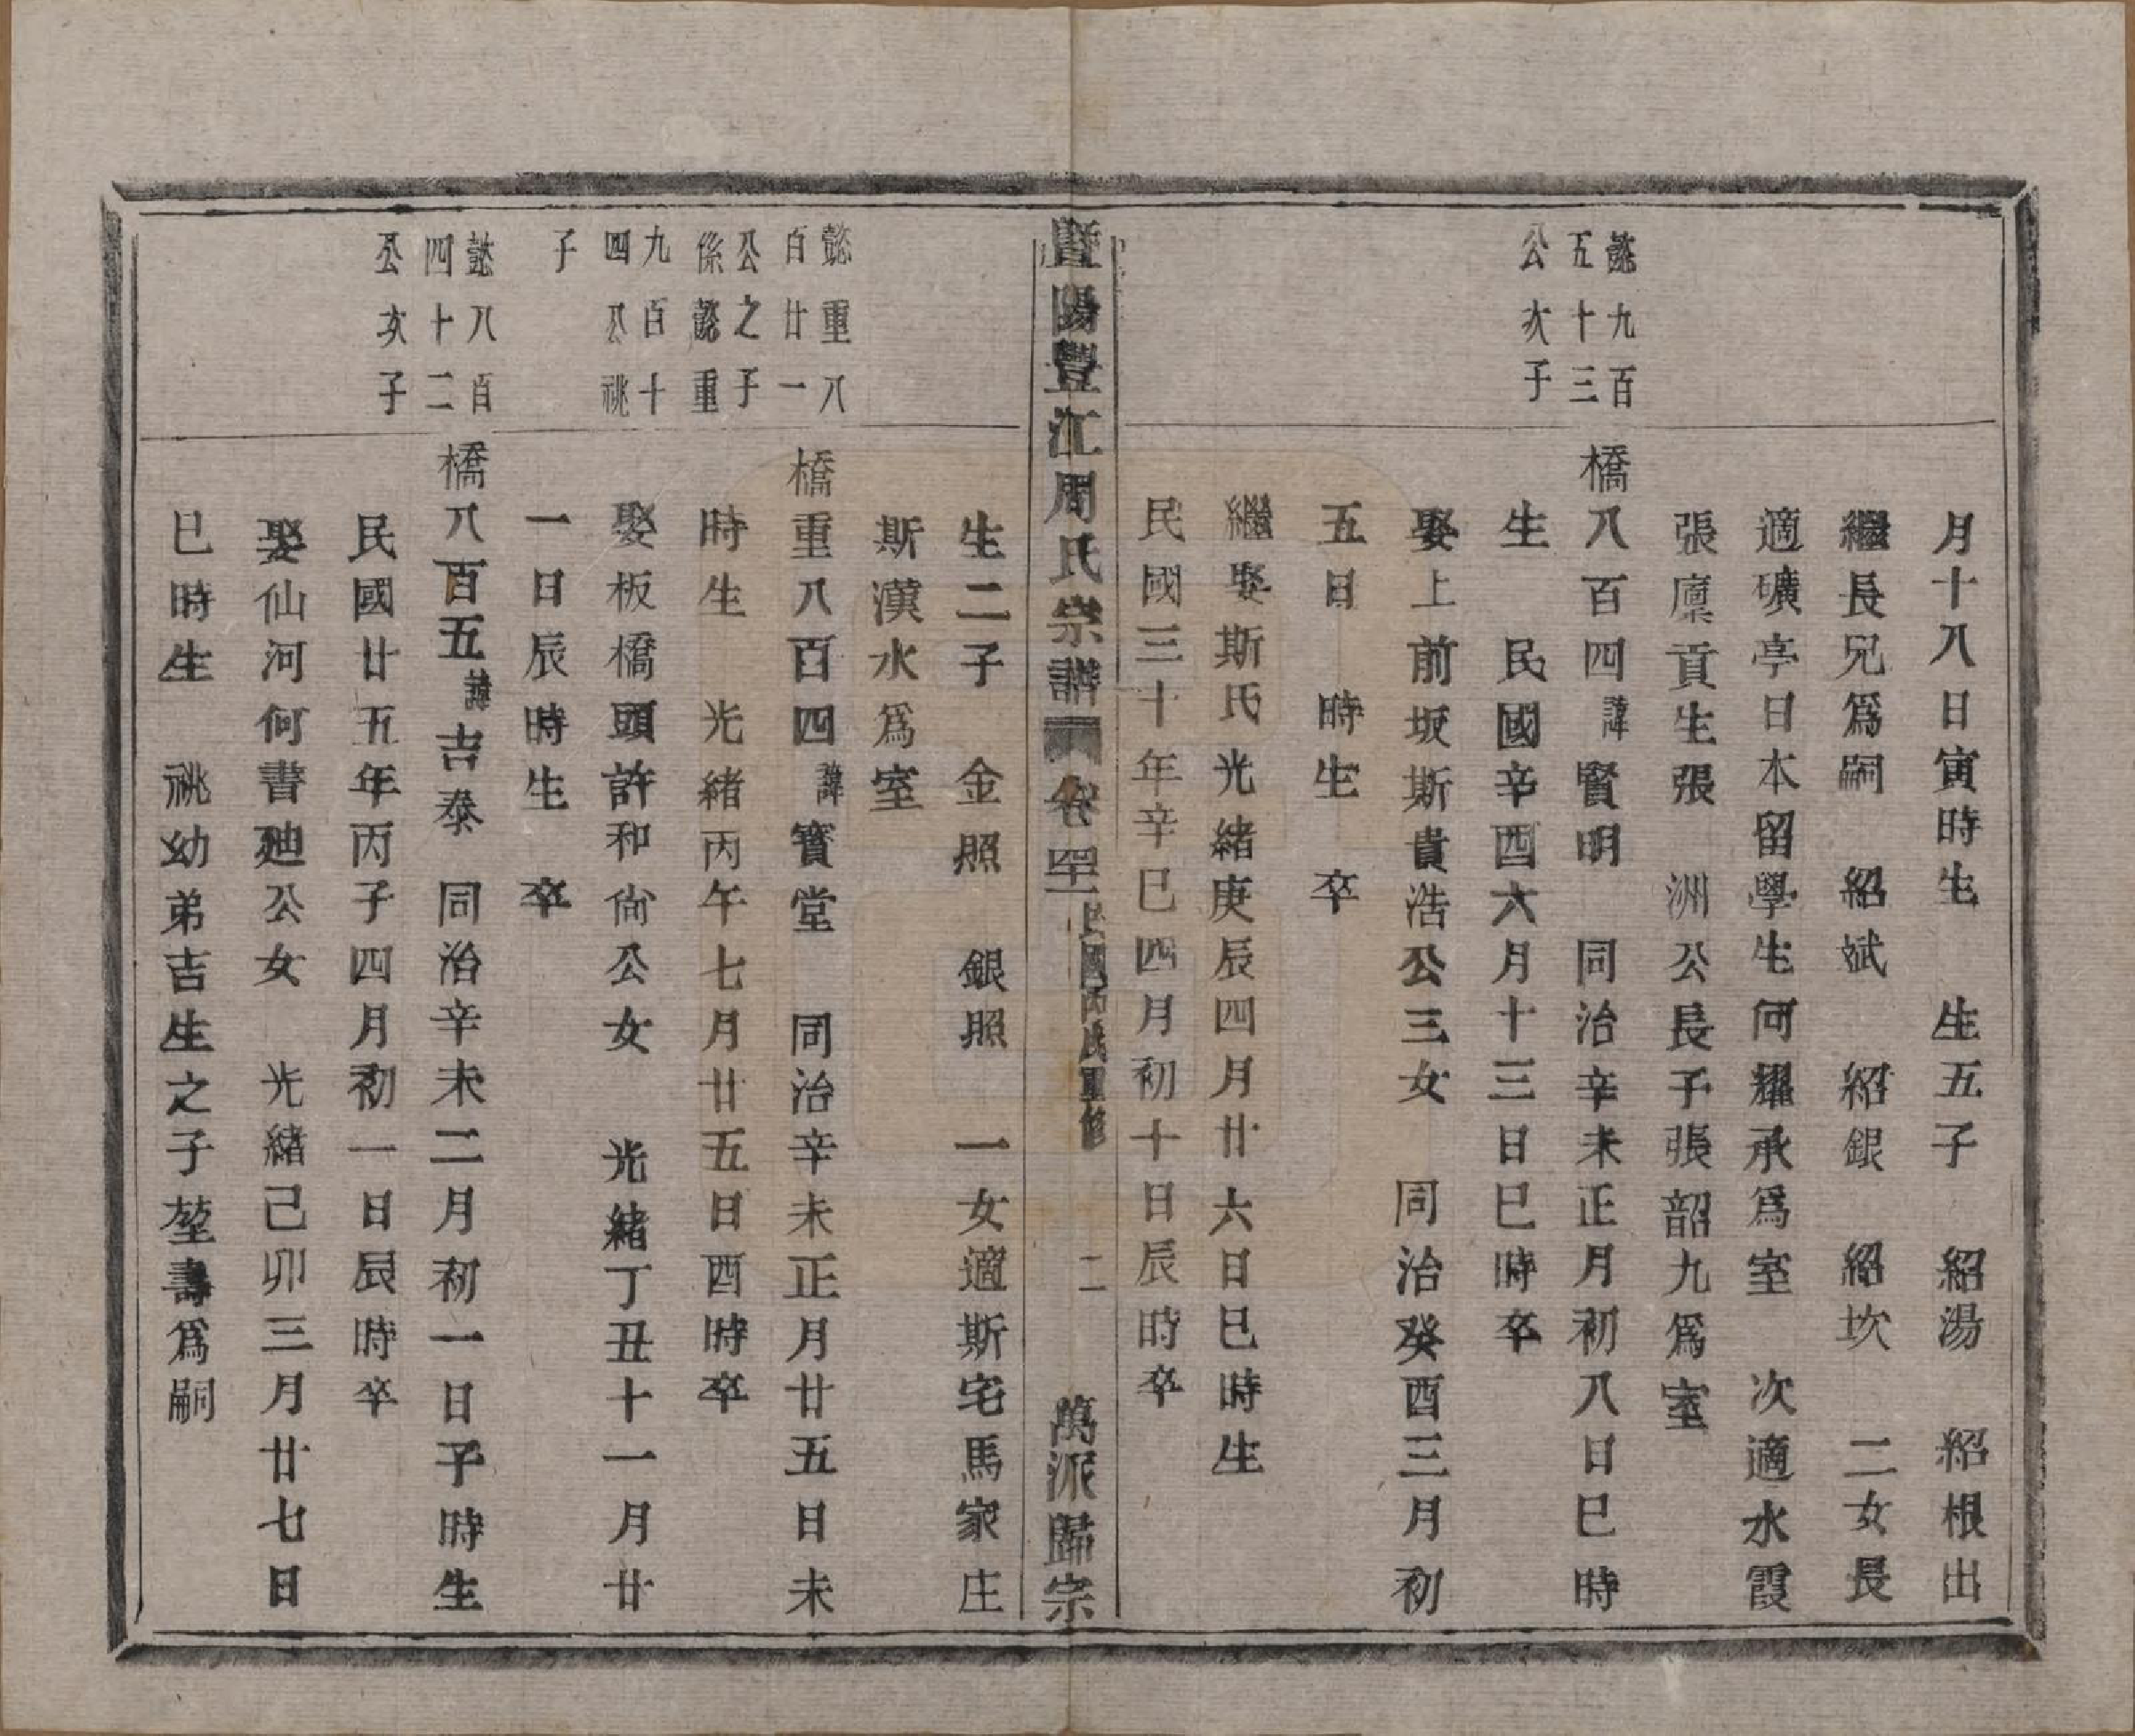 月十八日寅時生　生五子　紹湯　紹根出
繼長兄爲嗣　紹斌　紹銀　紹坎　二女長
適礦亭日本留學生何耀承爲室　次適水霞
張廩貢生張　洲公長子張韶九爲室
懿九百
五十三
公次子
橋八百四諱賢明　同治辛未正月初八日巳時
生　民國辛酉六月十三日巳時卒
娶上前坂斯貴浩公三女　同治癸酉三月初
五日　時生　卒
繼娶斯氏光緒庚辰四月廿六日巳時生
民國三十年辛巳四月初十日辰時卒
暨陽豐江周氏宗譜　卷　民國丙戌重修　二　萬派歸宗
生二子　金照　銀照　一女適斯宅馬家庄
斯漢水爲室
懿重八
百廿一
公之子
係懿重
九百十
四公祧
子
橋重八百四諱寳堂　同治辛未正月廿五日未
時生　光緒丙午七月廿五日酉時卒
娶板橋頭許和尙公女　光緒丁丑十一月廿
一日辰時生　卒
懿八百
四十二
公次子
橋八百五諱吉泰　同治辛未二月初一日子時生
民國廿五年丙子四月初一日辰時卒
娶仙河何書廸公女　光緒己卯三月廿七日
巳時生　祧幼弟吉生之子堃壽爲嗣